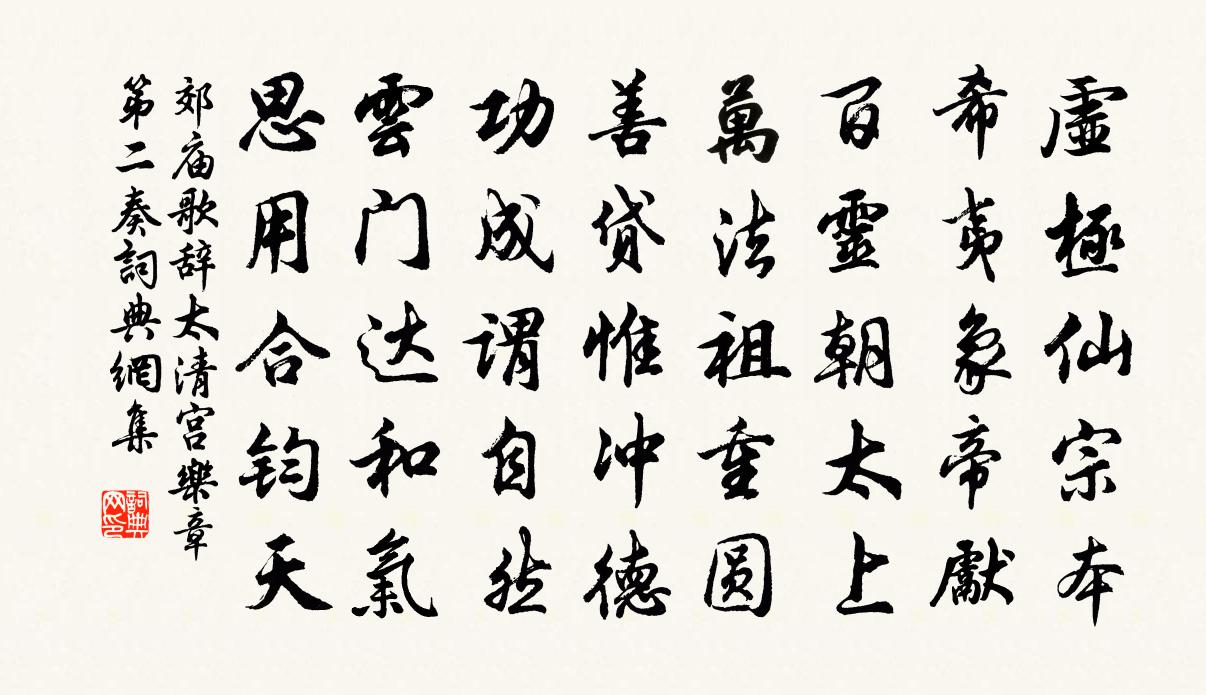 虛極仙宗本
希夷象帝獻
百靈朝太上
萬法祖重圆
善貸惟沖德
功成謂自然
雲门达和氣
思用合钧天
郊庙歌辞太清宫樂章
第二奏詞典網集
詞典
网印